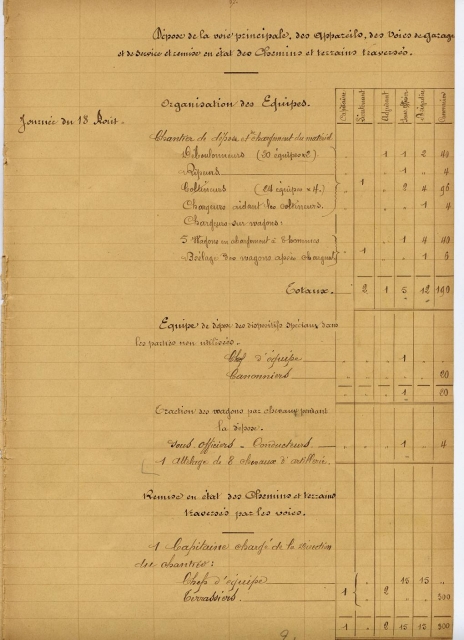 Dépose de la voie principale, des Appareils, des Voies de garage
et de Service et remise en état des Chemins et terrains traversés.
Organisation des Equipes.
Capitaine Lieutenant Adjudant Sous-Officiers Brigadiers Hommes
Journée du 18 Août.
Chantier de dépose et chargement du matériel.
Déboulonneurs (20 équipes x 2) 1 1 2 40
Ripeurs 1 4
Coltineurs (24 équipes x 4) 1 2 4 96
Chargeurs aidant les coltineurs. 1 4
Chargeurs sur wagons:
5 Wagons en chargement à 8 hommes 1 4 40
Brêlage des wagons après chargt 1 1 6
Totaux. 2 1 5 12 190
Equipe de dépose des dispositifs spéciaux dans
les parties non utilisées.
Chef d'équipe 1
Canonniers 20
1 20
Traction des wagons par chevaux pendant
la dépose.
Sous Officiers - Conducteurs 1 4
1 Attelage de 8 chevaux d'artillerie.
Remise en état des Chemins et terrains
traversés par les voies.
1 Capitaine chargé de la direction
du chantier:
Chefs d'équipe 15 15
Terrassiers. 1 2 300
1 2 15 15 300